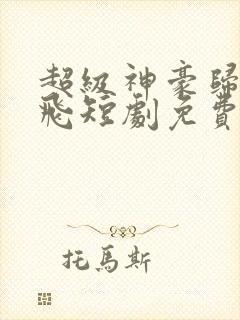 超級神豪歸
飛短劇免費
托馬斯